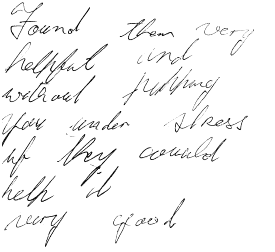 Found them very
helpful and
without putting
you under stress
if they could
help it
very good